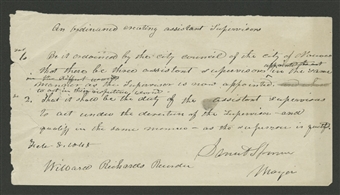 An ordinance creating assistant Supervisors
1. Be it ordained by the city council of the city of Nauvoo
that there be three assistant supervisors appointed
in the different wards in the same
manner as the supervisor is now appointed
to act in their respective wards
2. And it shall be the duty of the assistant supervisors
to act under the direction of the supervisor and
qualify in the same manner as the supervisor is
Feb. 3. 1845
Daniel Spencer
Willard Richards Recorder
Mayor